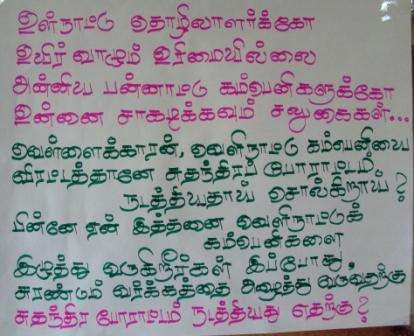 உள்நாட்டு தொழிலாளர்க்கோ
உயிர் வாழும் உரிமையில்லை
அன்னிய பன்னாட்டு கம்பெனிகளுக்கோ
உன்னை சாகடிக்கவும் சலுகைகள்...
வெள்ளைக்காரன், வெளிநாட்டு கம்பெனியை
விரட்டத்தானே சுதந்திரப் போராட்டம்
நடத்தியதாய் சொல்கிறாய் ?
பின்னே ஏன் இத்தனை வெளிநாட்டுக்
கம்பெனிகளை
இழுத்து வருகிறீர்கள் இப்போது
சுரண்டும் வர்க்கத்தை அழைத்து வருவதற்கு
சுதந்திர போராட்டம் நடத்தியது எதற்கு ?